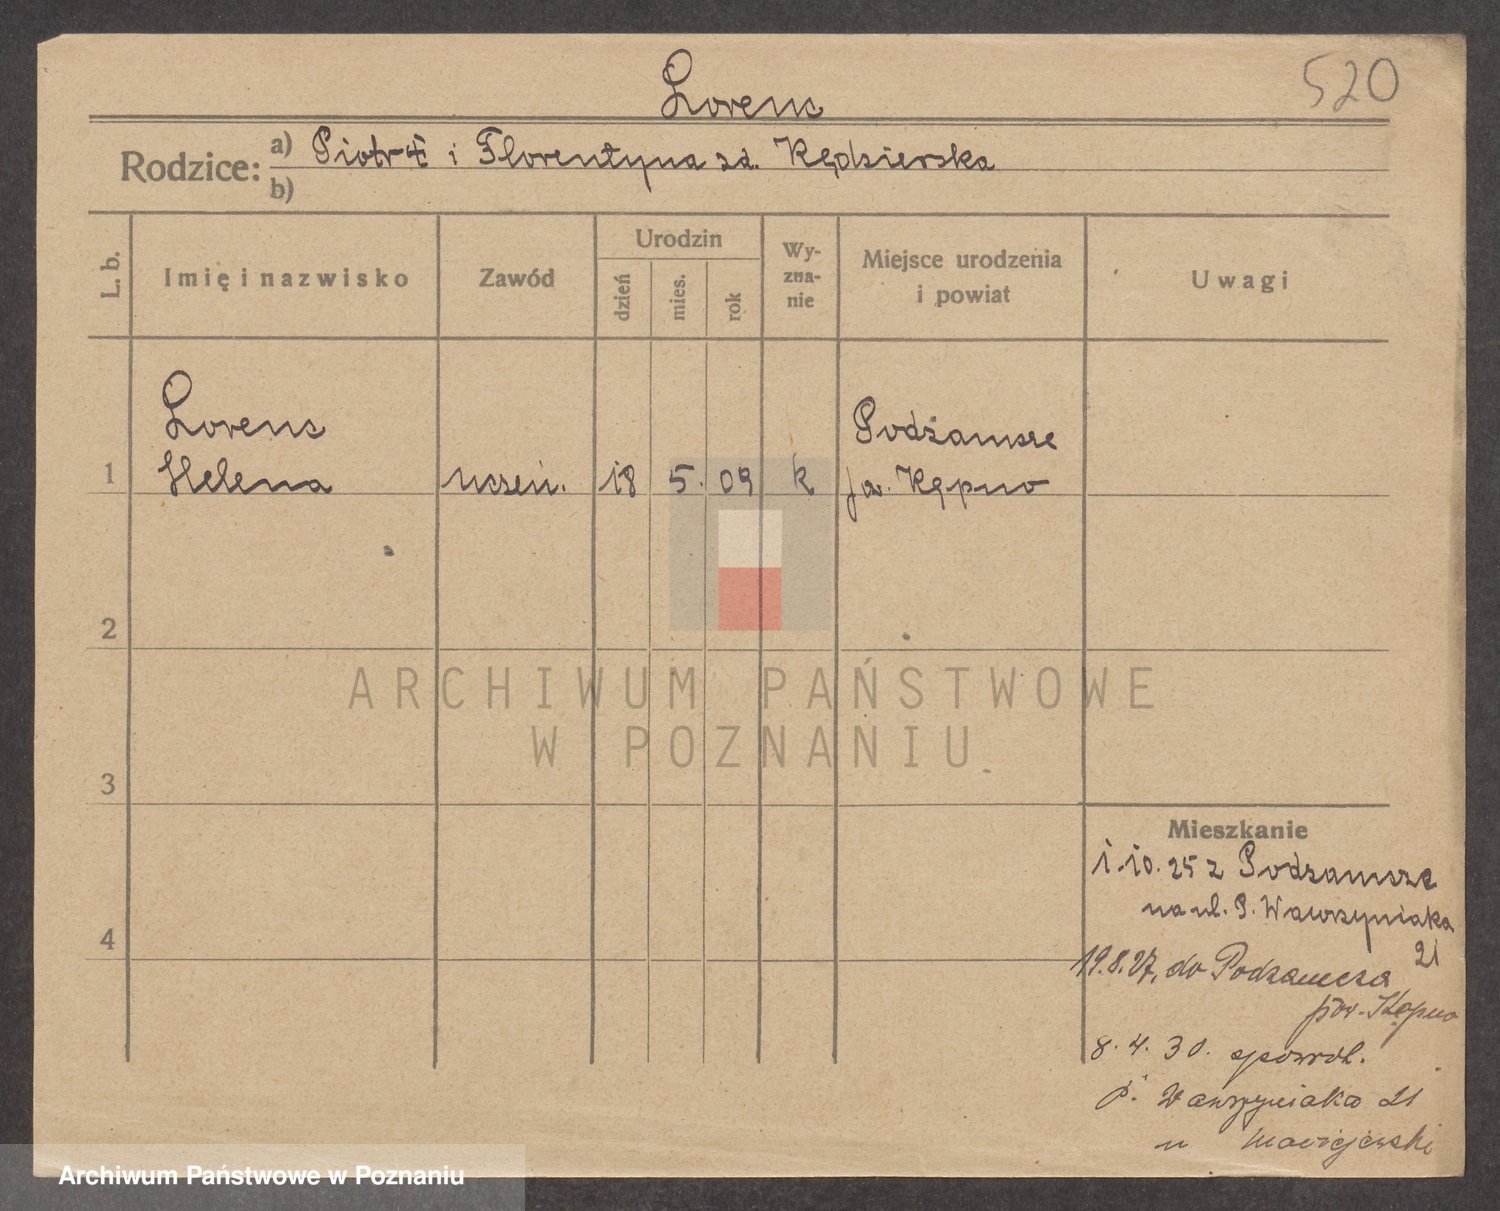 520
Lorenc
Rodzice: a) Piotr i Florentyna zd. Kędzierska
b)
L. b.
Imię i nazwisko
Zawód
Urodzin
dzień
mies.
rok
Wy-
zna-
nie
Miejsce urodzenia
i powiat
Uwagi
Lorenc
Podzamcze
1 Helena uczeń. 18 5. 09 k Kępno
2
ARCHIWUM PAŃSTWOWE
W POZNANIU
3
Mieszkanie
1.10.25 z Podzamcze
na ul. P. Wawrzyniaka
21
4
19.8.27, do Podzamcza
pow. Kępno
8. 4. 30. spowrot.
P. Wawrzyniaka 21
u Maciejewski
Archiwum Państwowe w Poznaniu